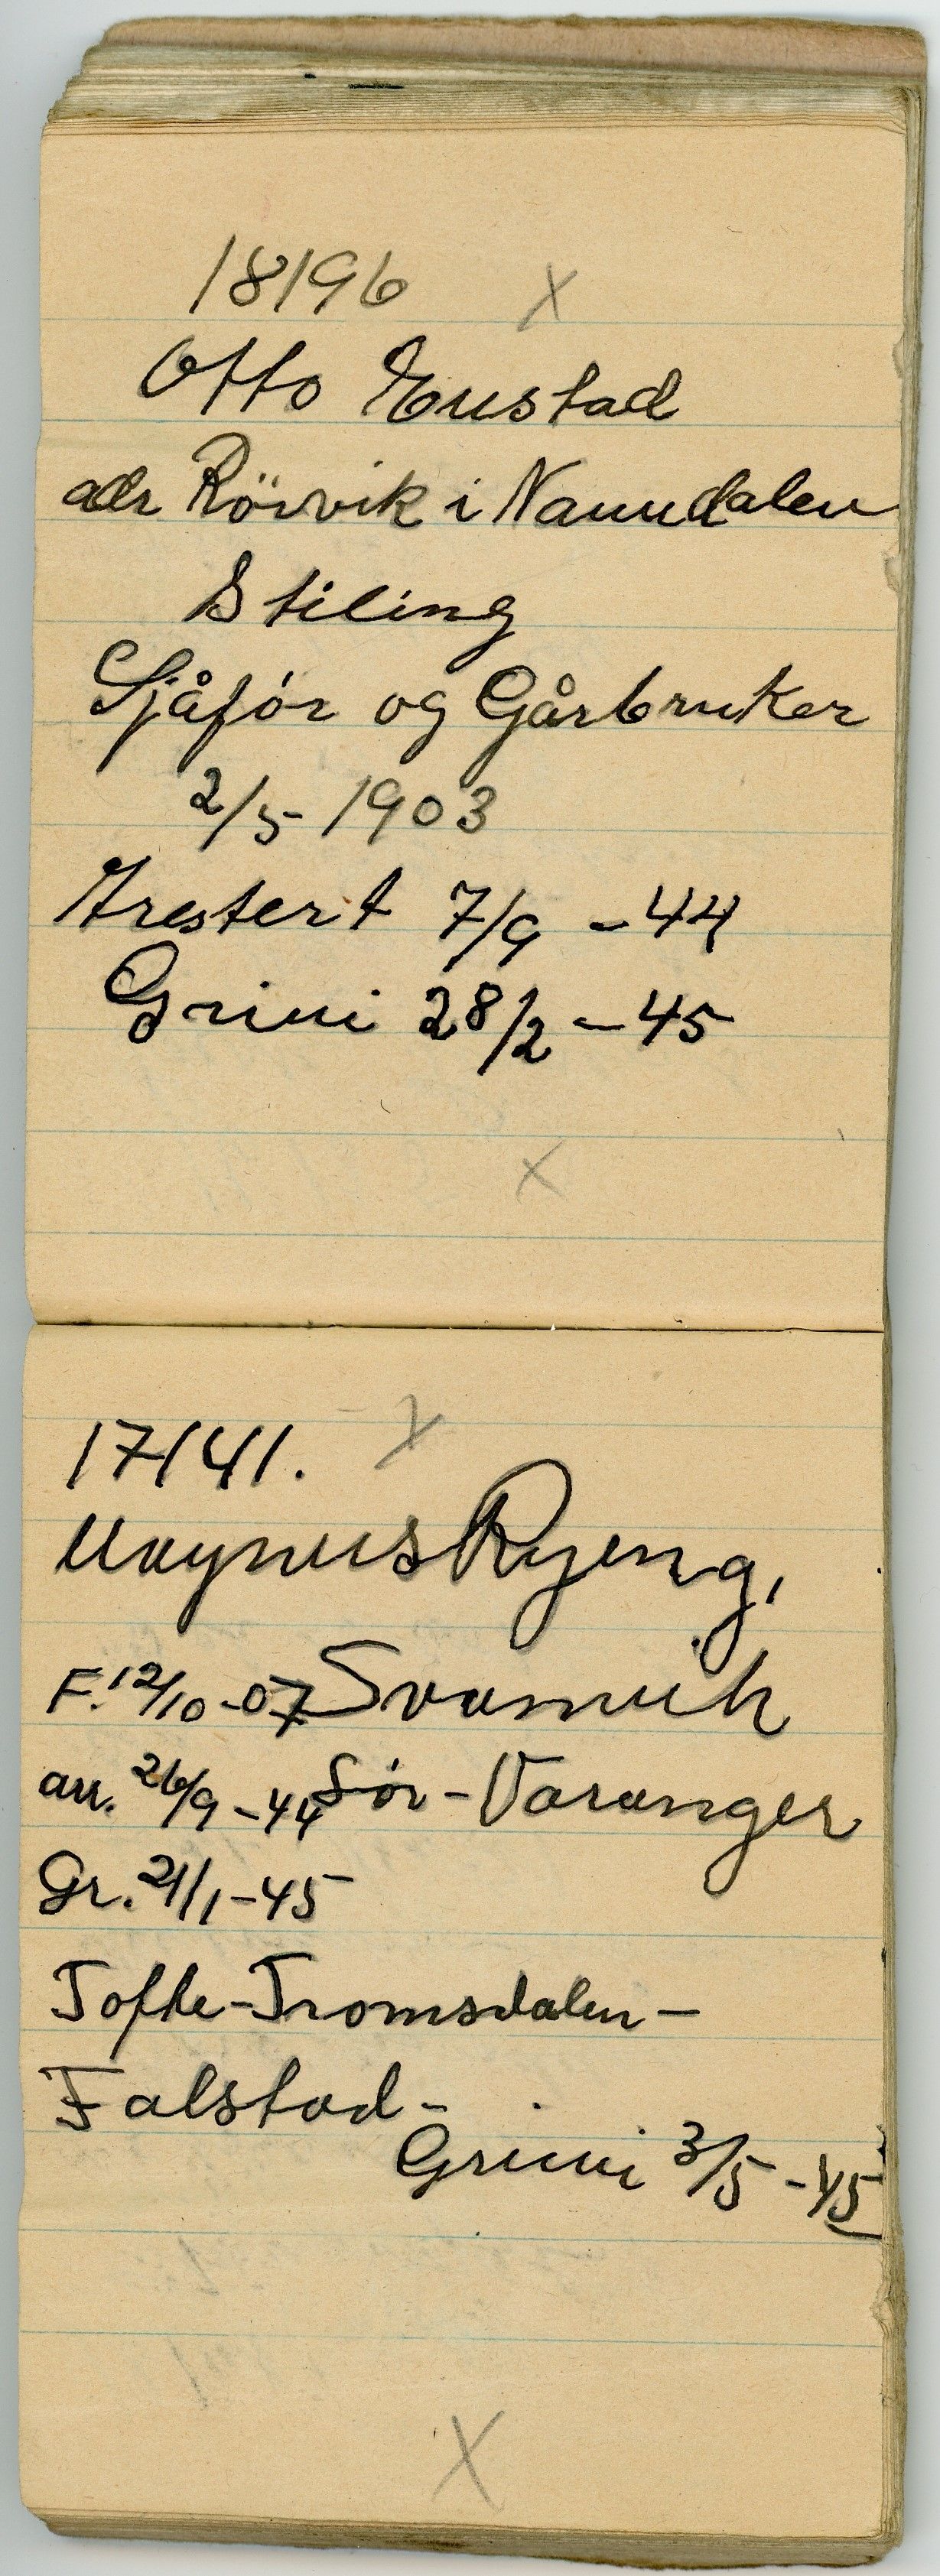 18196 X
Otto Eustad
adr Rörvik i Namdalen
Stiling
Sjåfór og Gårbruker
2/5-1903
Arestert 7/9 - 44
Grini 28/2 - 45
X
17141. X
Magnus Ryeng,
F. 12/10-07 Svanvik
arr. 26/9-44 Sør-Varanger
Gr. 21/1-45
Tofte-Tromsdalen-
Falstad-
Grini 3/5-45
X